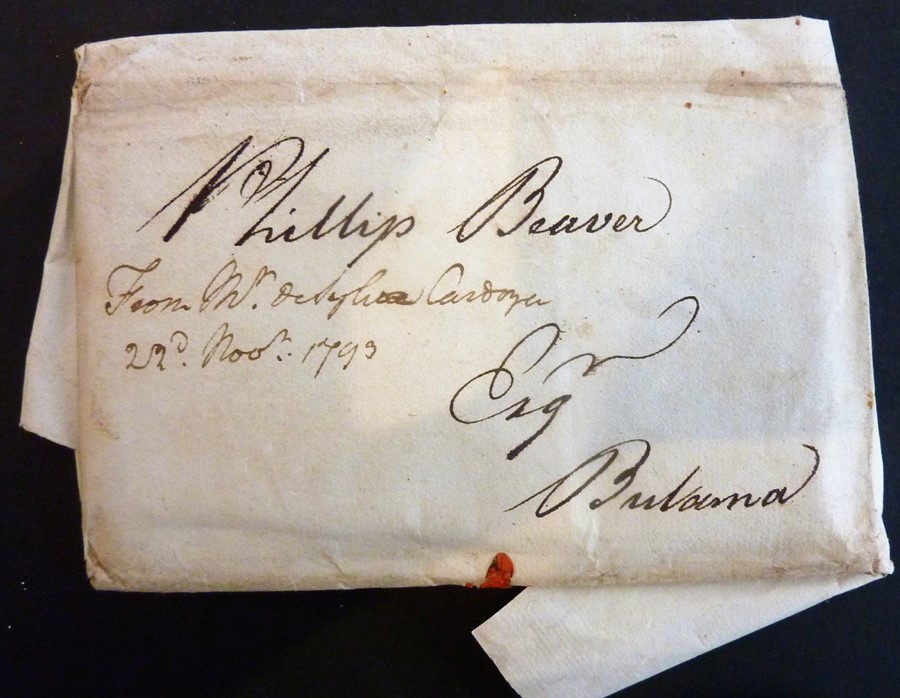 Phillip Beaver
From Mr. de Sylva Cardozo
22d. Novr. 1793
Esqr
Bulama